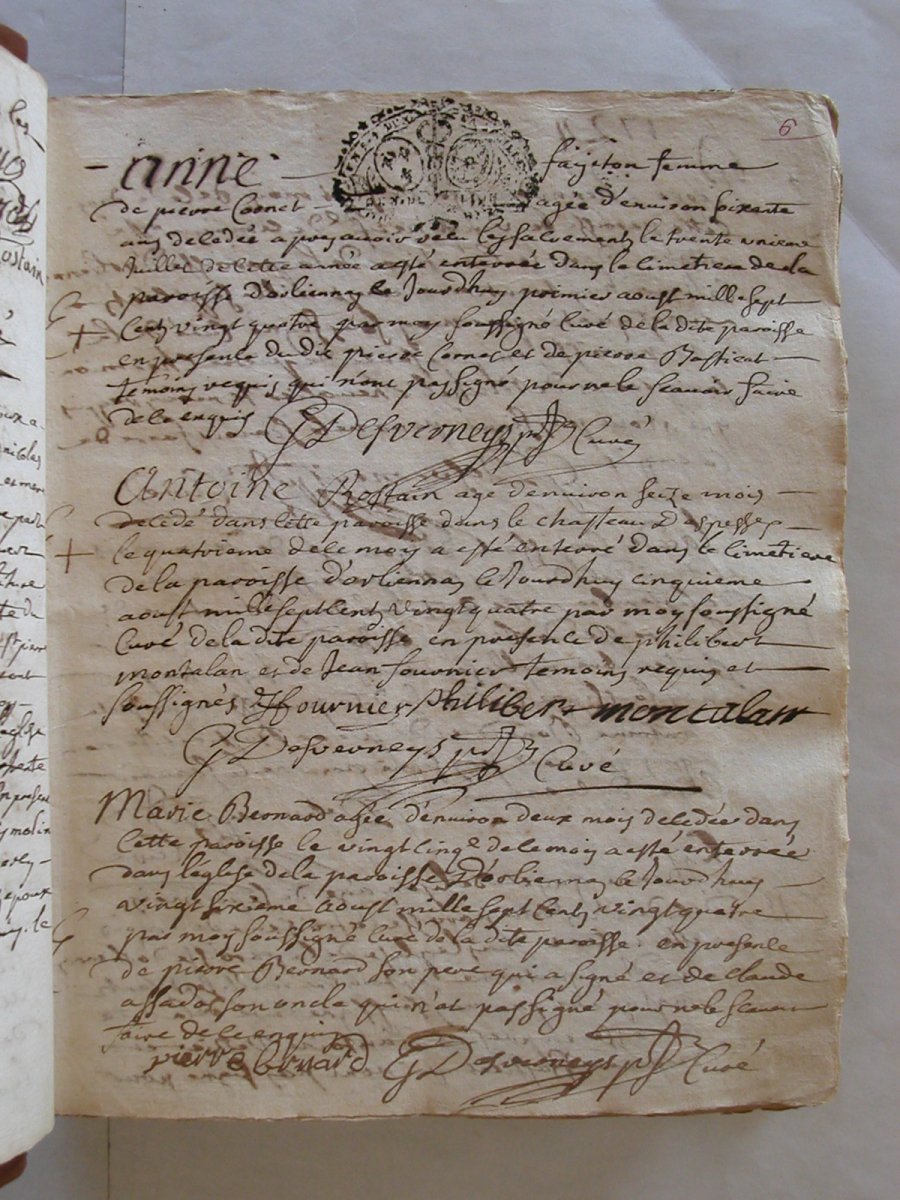 6
Anne fayston femme
de pierre Cornet agée d'environ soixante
ans decedée apres avoir recu les sacrements le trente unieme
Juillet de cette année a esté enterrée dans le cimetiere de la
paroisse d'orliennas le Jourdhuy premier aoust mille sept
cents vingt quatre par moy soussigné curé de la dite paroisse
en presence du dit pierre Cornet et de pierre
temoins requis qui n'ont pas signé pour ne le scavoir faire
de ce enquis G Desverneys ptre Curé
Antoine Rostain age d'environ seize mois
decedé dans cette paroisse dans le chasteau
le quatrieme de ce moy a esté enterré dans le cimetiere
de la paroisse d'orliennas le Jourdhuy cinquieme
aoust mille sept cent vingt quatre par moy soussigné
curé de la dite paroisse en presence de philibert
montalan et de Jean fournier temoins requis et
soussignés J fournier philibert montalan
G Desverneys ptre Curé
Marie Bernard agée d'environ deux mois decedée dans
cette paroisse le vingt cinq de ce moy a esté enterrée
dans l'eglise de la paroisse d'orliennas le Jourdhuy
vingt sixieme aoust mille sept cents vingt quatre
par moy soussigné curé de la dite paroisse en presence
de pierre Bernard son pere qui a signé et de claude
son oncle qui n'at pas signé pour ne le scavoir
faire de ce enquis
pierre bernard G Desverneys ptre Curé